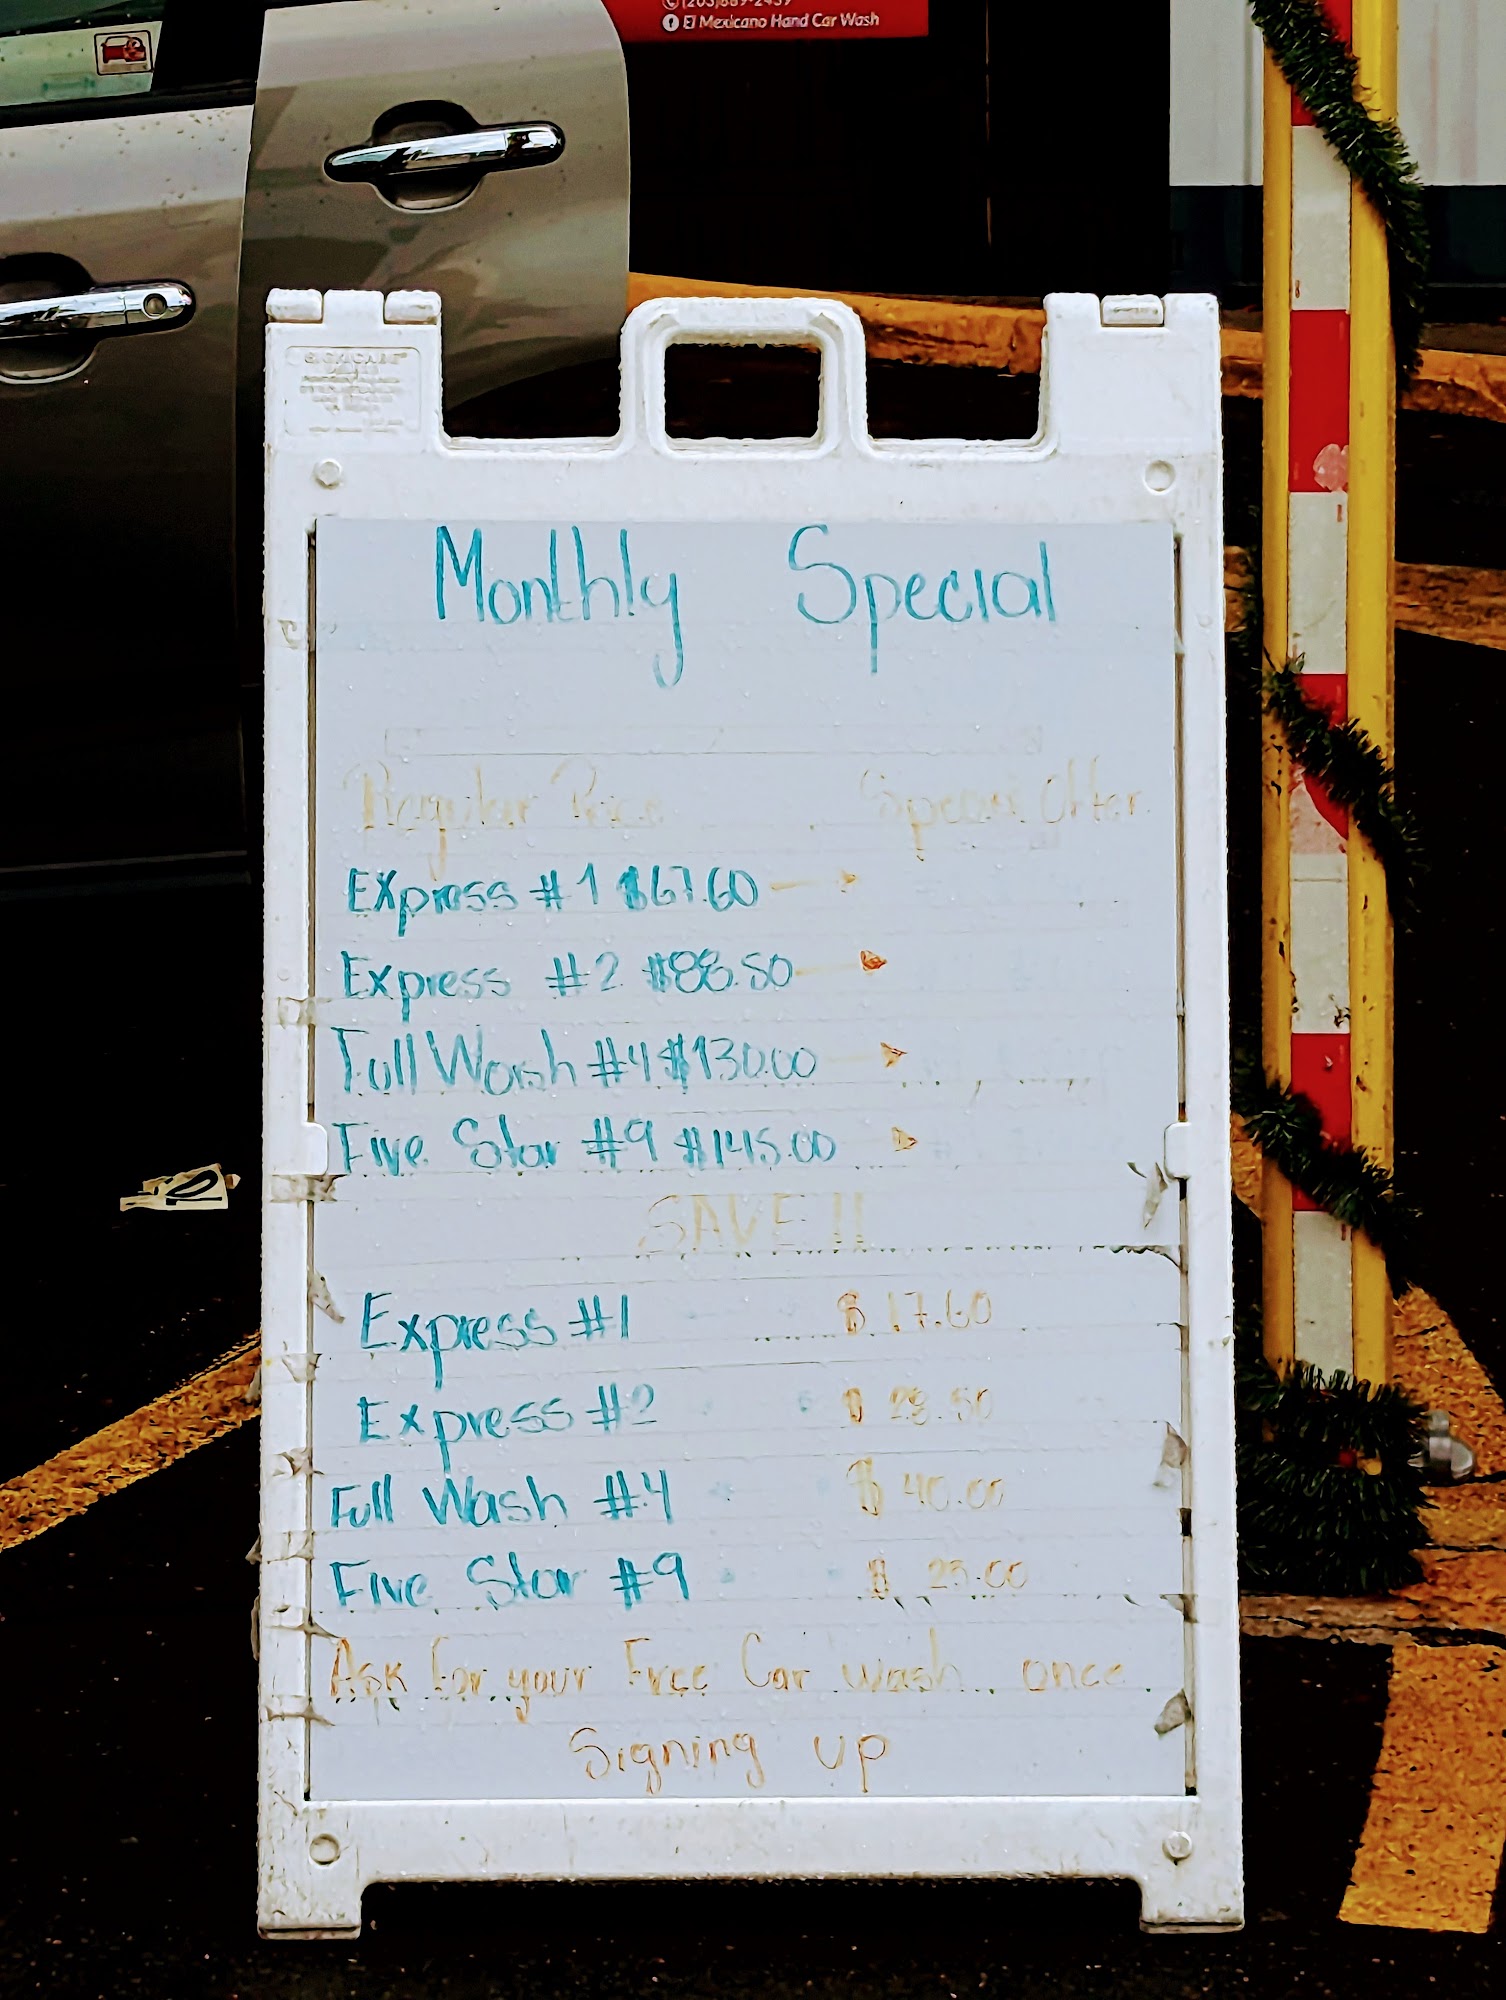 El Mexicano Hand Car Wash
Monthly Special
Regular Price Special Offer
Express #1 $67.60
Express #2 $88.50
Full Wash #4 $130.00
Five Star #9 $145.00
SAVE!!
Express #1 $17.60
Express #2 $28.50
Full Wash #4 $40.00
Five Star #9 $ 25.00
Ask for your Free Car wash once
Signing up